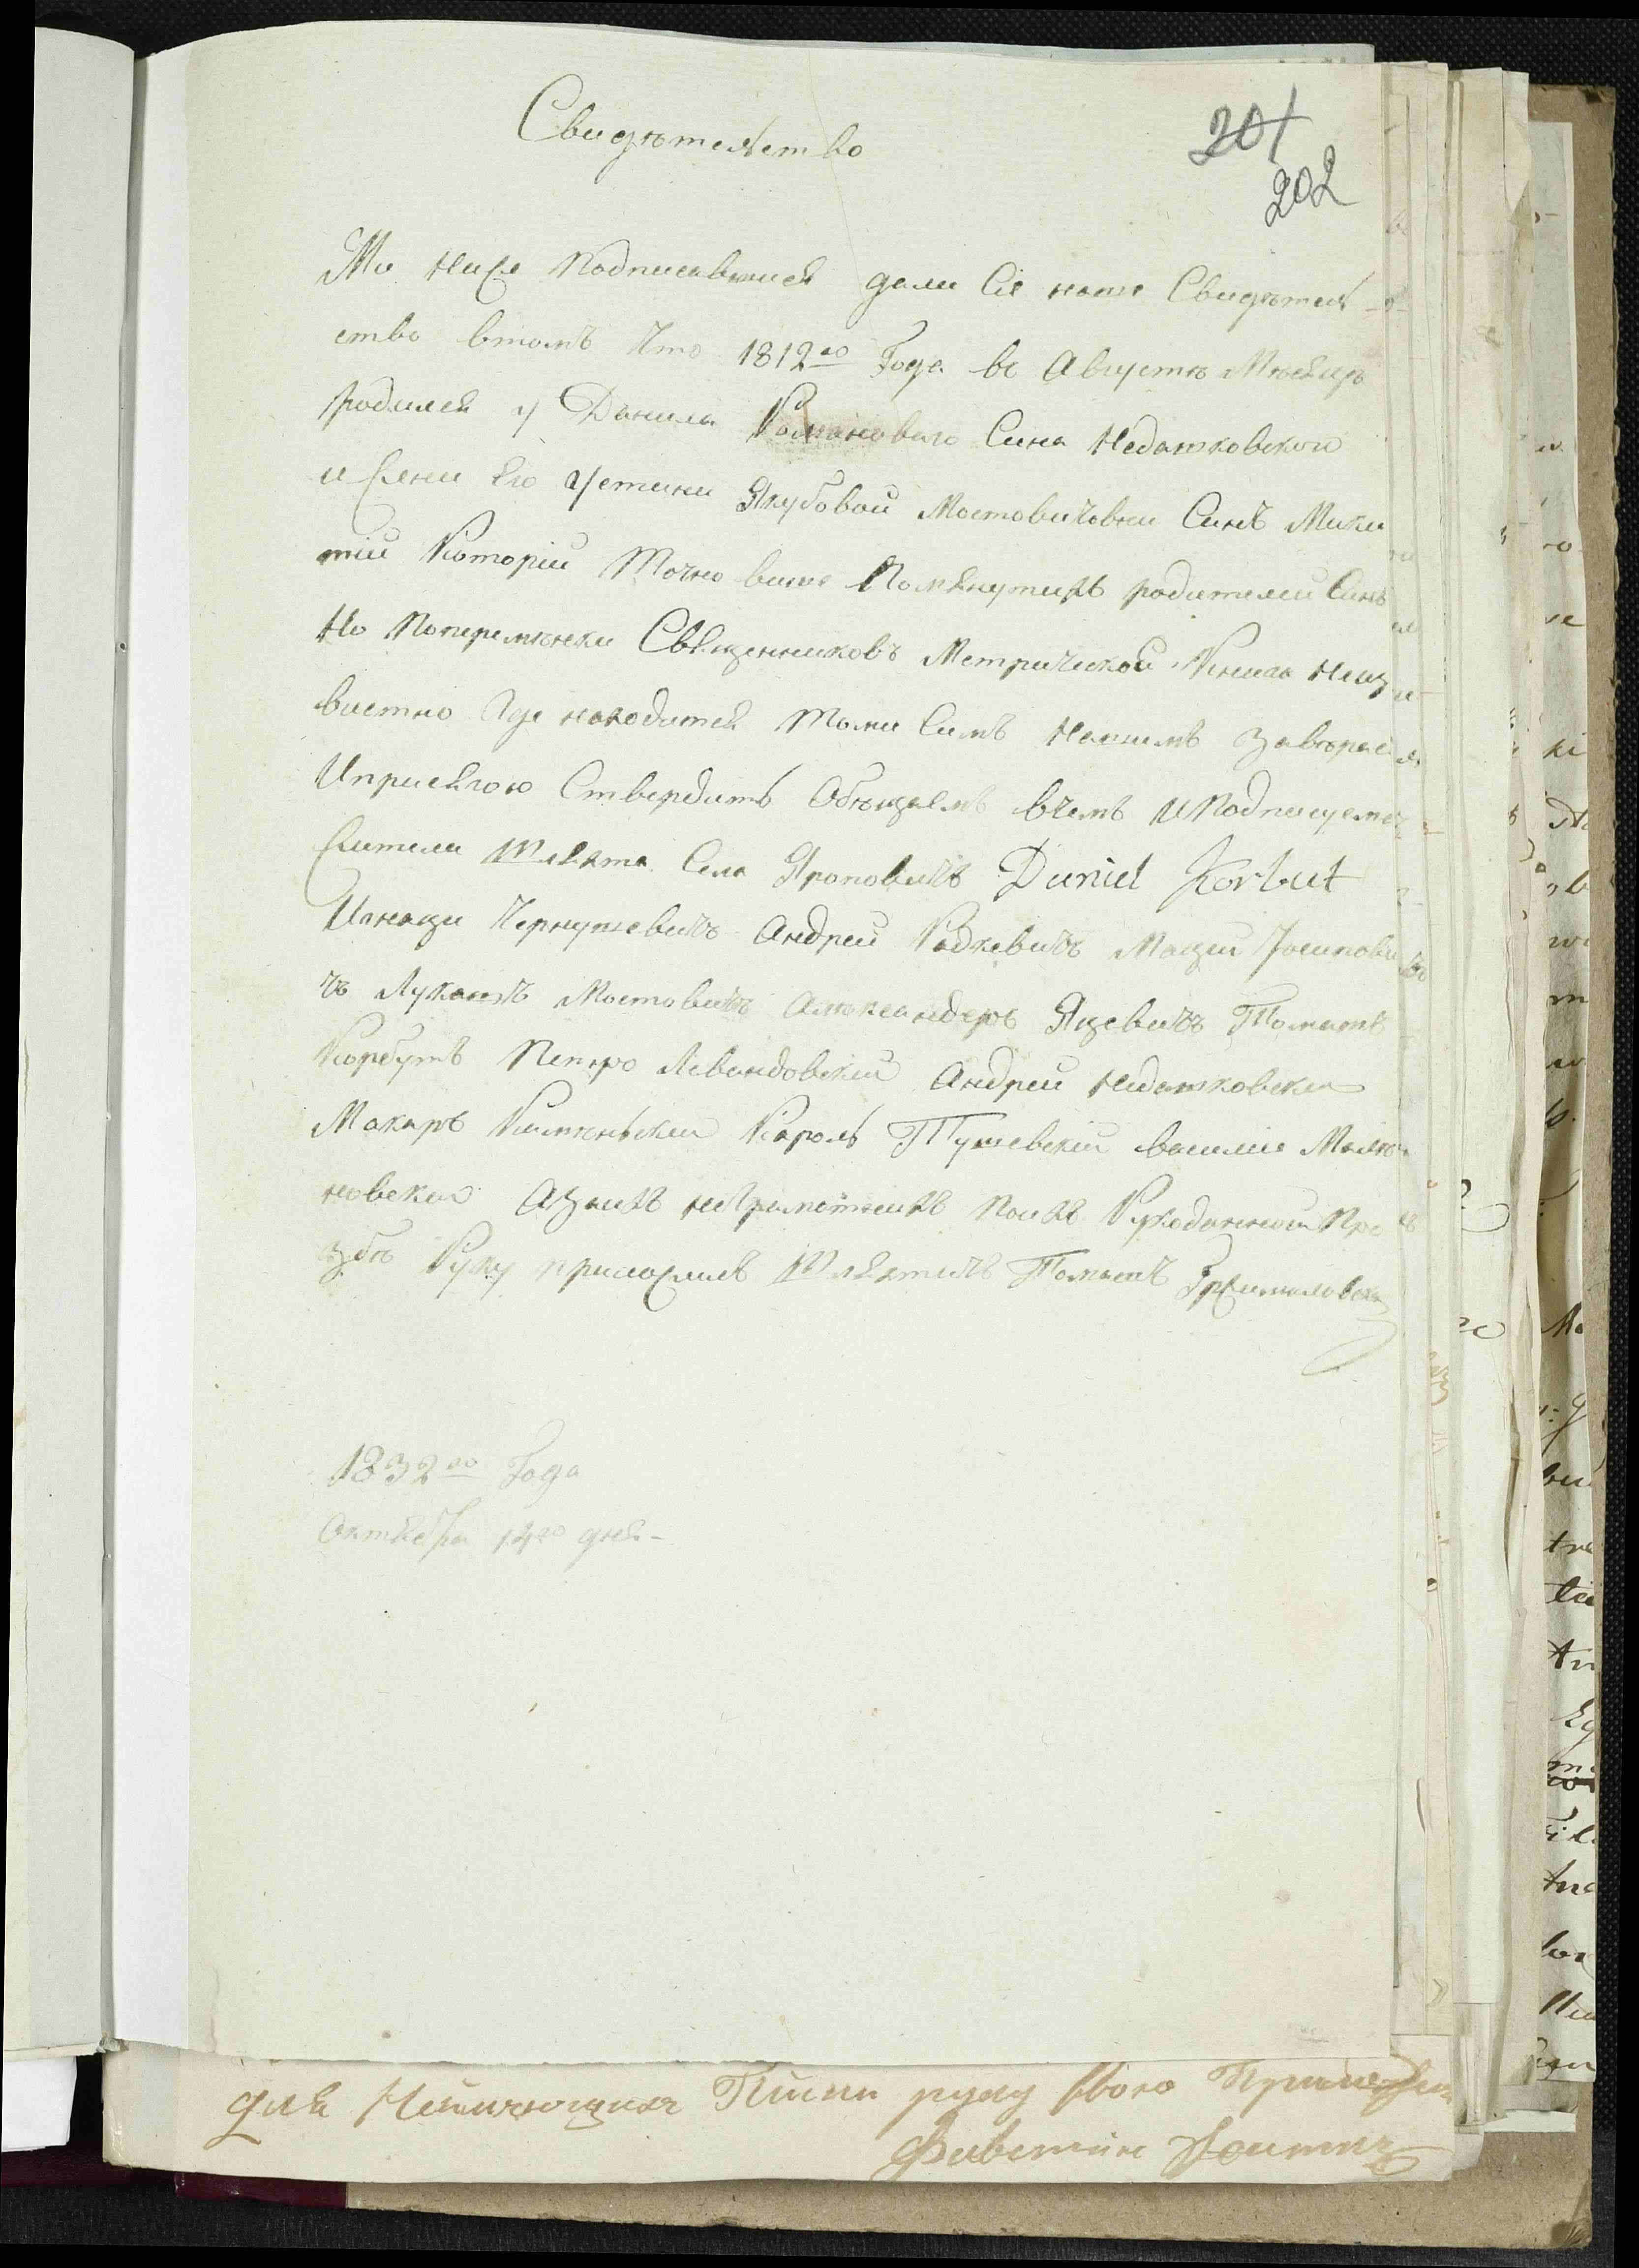 Свидѣтелство
201
202
Ми ниже Подписавшися дали Сіе наше Свидѣтел
ство втомъ Что 1812го Года ве Августѣ Мѣсяцѣ
родился у Данила Романового Сина Недашковского
и жени Его Устини Якубовой Мостовичовни Синъ Мики
тій Которій Точно више Помянутихъ родителей Синъ
Но Поперемѣнки Священниковъ Метрической Книга Неиз
вистно Где находится Томи Симъ Нашимъ завѣряе
Иприсягою Ствердить Обѣщаемъ вчемъ ИПодписуемс
жители Шляхта Села Яроповичъ Daniel Korbut
Игнаци Чернушевичъ Андрей Радкевичъ Мацей Јосипови
чъ Лукашъ Мостовичъ Алѣксандеръ Яцевичъ Томашъ
Корбутъ Петро Левандовскій Андрей Недашковски
Макаръ Каминьскій Кароль Тушевскій василіе Малѣ
новскій Азанихъ неграмотнихъ Поихъ Рукоданной Про
збѣ Руку приложилъ Шляхтичъ Томашъ Гржималовски
1832го Года
Октября 14го дня -
для Неимеющихъ руку свою